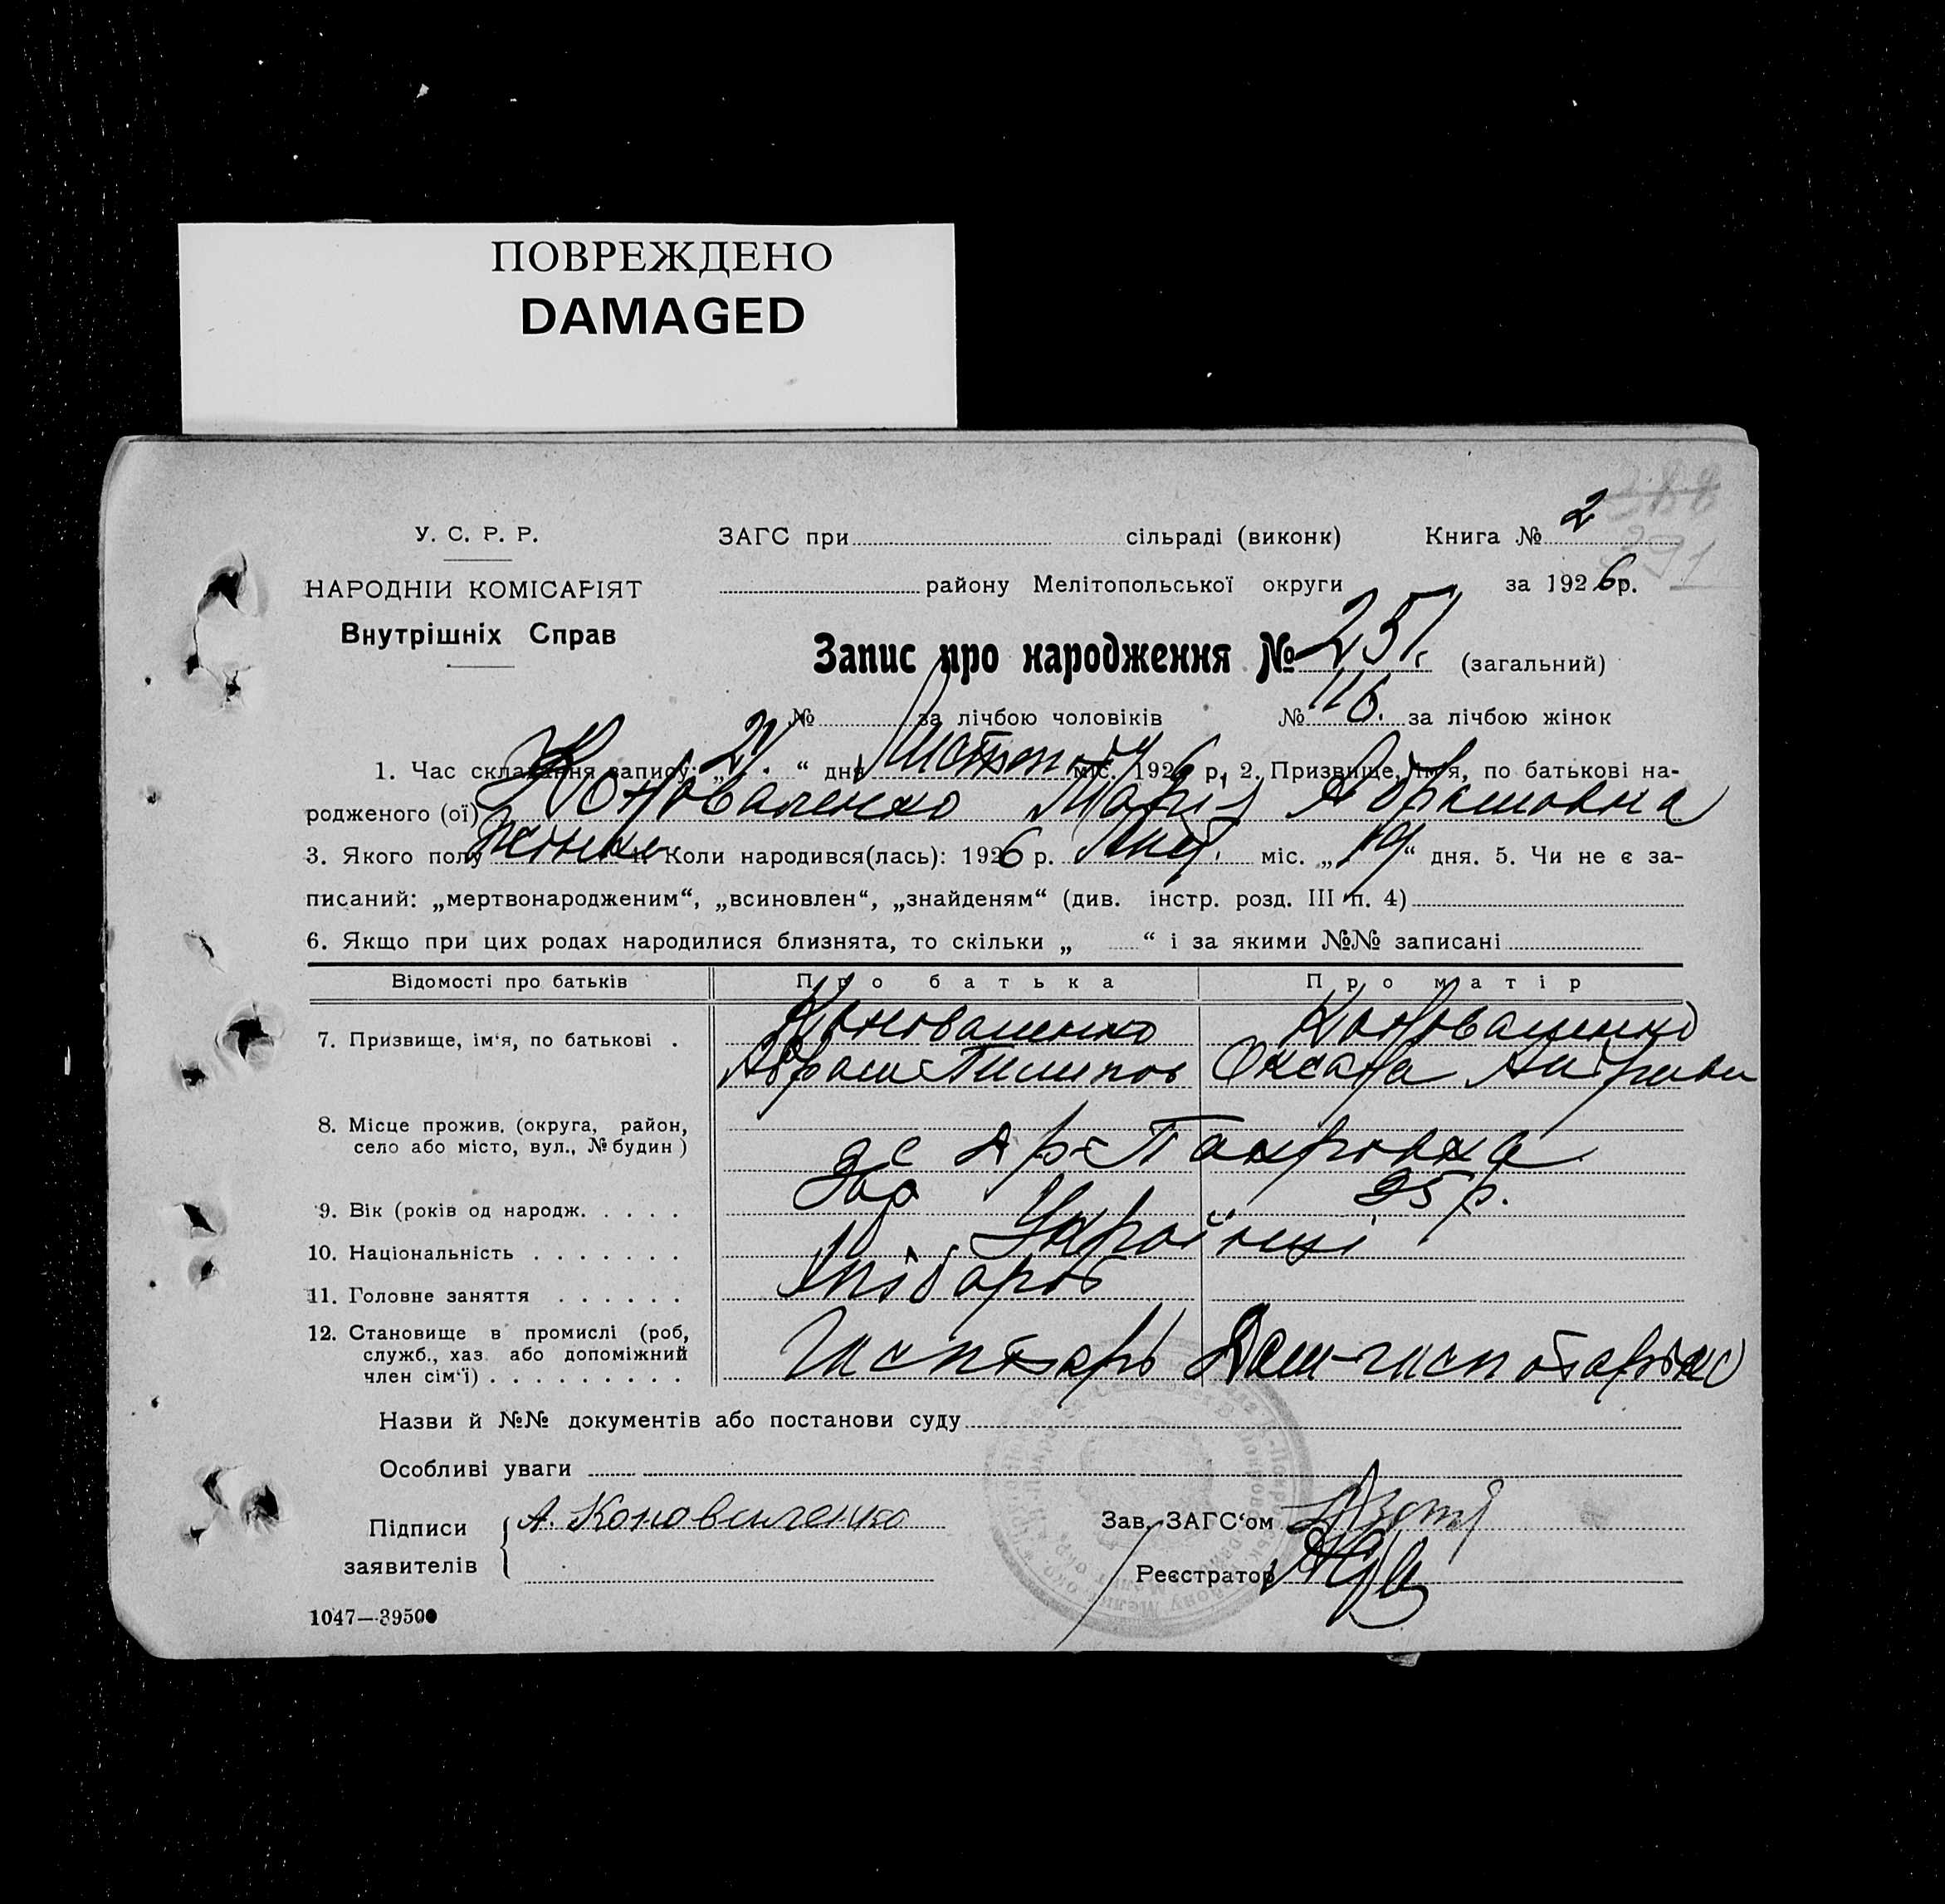 ПОВРЕЖДЕНО
DAMAGED
388
391
У. С. Р. Р.
ЗАГС при сільраді (виконк) Книга № 2
НАРОДНІЙ КОМІСАРІЯТ
району Мелітопольської округи за 1926 р.
Внутрішніх Справ
Запис про народження № 251. (загальний)
№ за лічбою чоловіків № 116. за лічбою жінок
1. Час складання запису: „21“ дня Листоп міс. 1926 р. 2. Призвище, ім'я, по батькові на-
родженого (ої) Коноваленко Марія Абрамовна
3. Якого полу жіноч 4. Коли народився(лась): 1926 р. Лист. міс. „19“ дня. 5. Чи не є за-
писаний: „мертвонародженим“, „всиновлен“, „знайденям“ (див. інстр. розд. III п. 4)
6. Якщо при цих родах народилися близнята, то скільки „ “ і за якими №№ записані
Відомості про батьків Про батька Про матір
7. Призвище, ім'я, по батькові . Коноваленко Коноваленко
Абрам Пилипов Оксана
8. Місце прожив. (округа, район,
село або місто, вул., № будин) Покровка
9. Вік (років од народж. . . . . 25 р.
10. Національність . . . . . . . Українці
11. Головне заняття . . . . . . Хлібороб
12. Становище в промислі (роб,
служб., хаз. або допоміжний
член сім'ї) . . . . . . . . .
Назви й №№ документів або постанови суду
Особливі уваги
Підписи А. Коноваленко Зав. ЗАГС'ом
заявителів Реєстратор
1047—39500